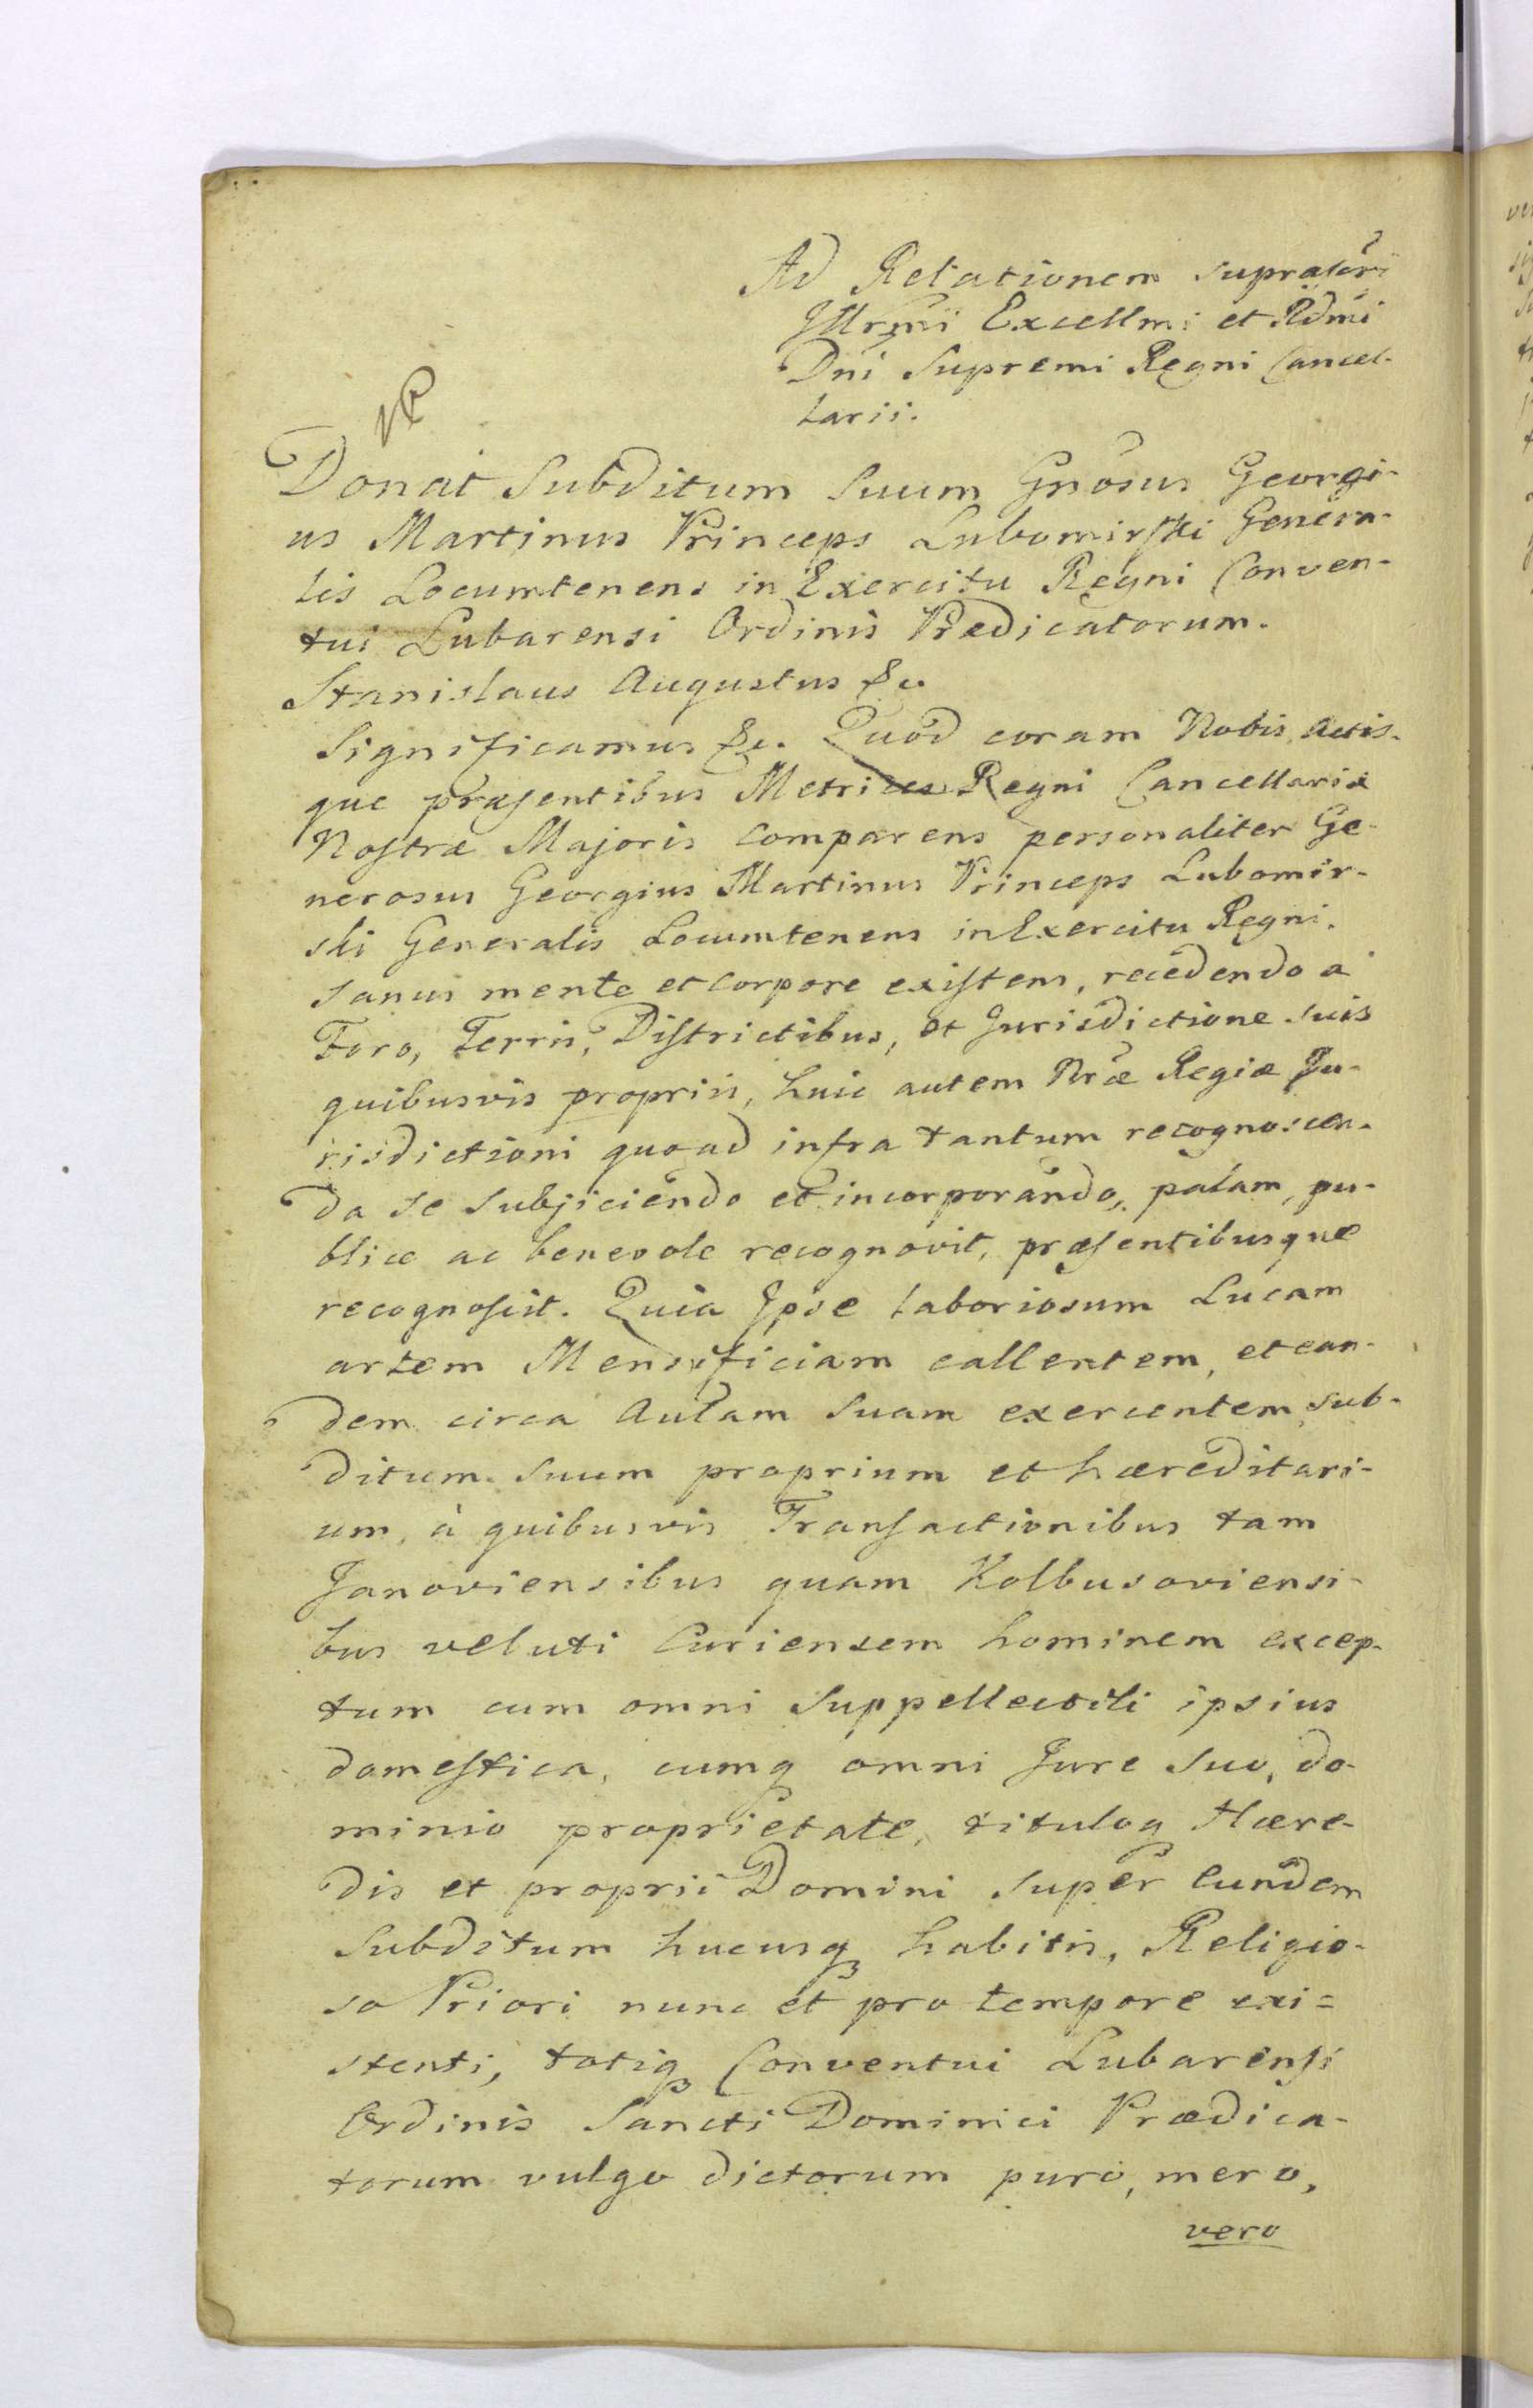 Ad Relationem supratõri
Jllrm̃i Excellm̃i et Rdm̃i
Dni Supremi Regni Cancel-
larii.
Donat Subditum Suum Gnõsus Georgi-
us Martinus Princeps Lubomirski Genera-
lis Locumtenens in Exercitu Regni Conven-
tui Lubarensi Ordinis Prædicatorum.
Stanislaus Augustus &c.
Significamus &c. Quod coram Nobis, Actis-
que præsentibus Metrices Regni Cancellariæ
Nostræ Majoris comparens personaliter Ge-
nerosus Georgius Martinus Princeps Lubomir-
ski Generalis Locumtenens in Exercitu Regni.
sanus mente et corpore existens, recedendo a
Foro, Terris, Districtibus, et Jurisdictione suis
quibusvis propriis, huic autem Nræ Regiæ Ju-
risdictioni quoad infra tantum recognoscen-
da se subjiciendo et incorporando, palam, pu-
blice ac benevole recognovit, præsentibusque
recognoscit. Quia Ipse laboriosum Lucam
artem Mensificiam callentem, et ean-
dem circa Aulam suam exercentem sub-
ditum suum proprium et hæreditari-
um, à quibusvis Transactionibus tam
Janoviensibus quam Kolbusoviensi-
bus veluti Curiensem hominem excep-
tum cum omni Suppellectili ipsius
domestica, cumq omni Jure suo, do-
minio proprietate, tituloq Hære-
dis et proprii Domini super eundem
Subditum hucusq habitis, Religio-
so Priori nunc et pro tempore exi=
stenti, totiq Conventui Lubarensi
Ordinis Sancti Dominici Prædica-
torum vulgo dictorum puro, mero,
vero